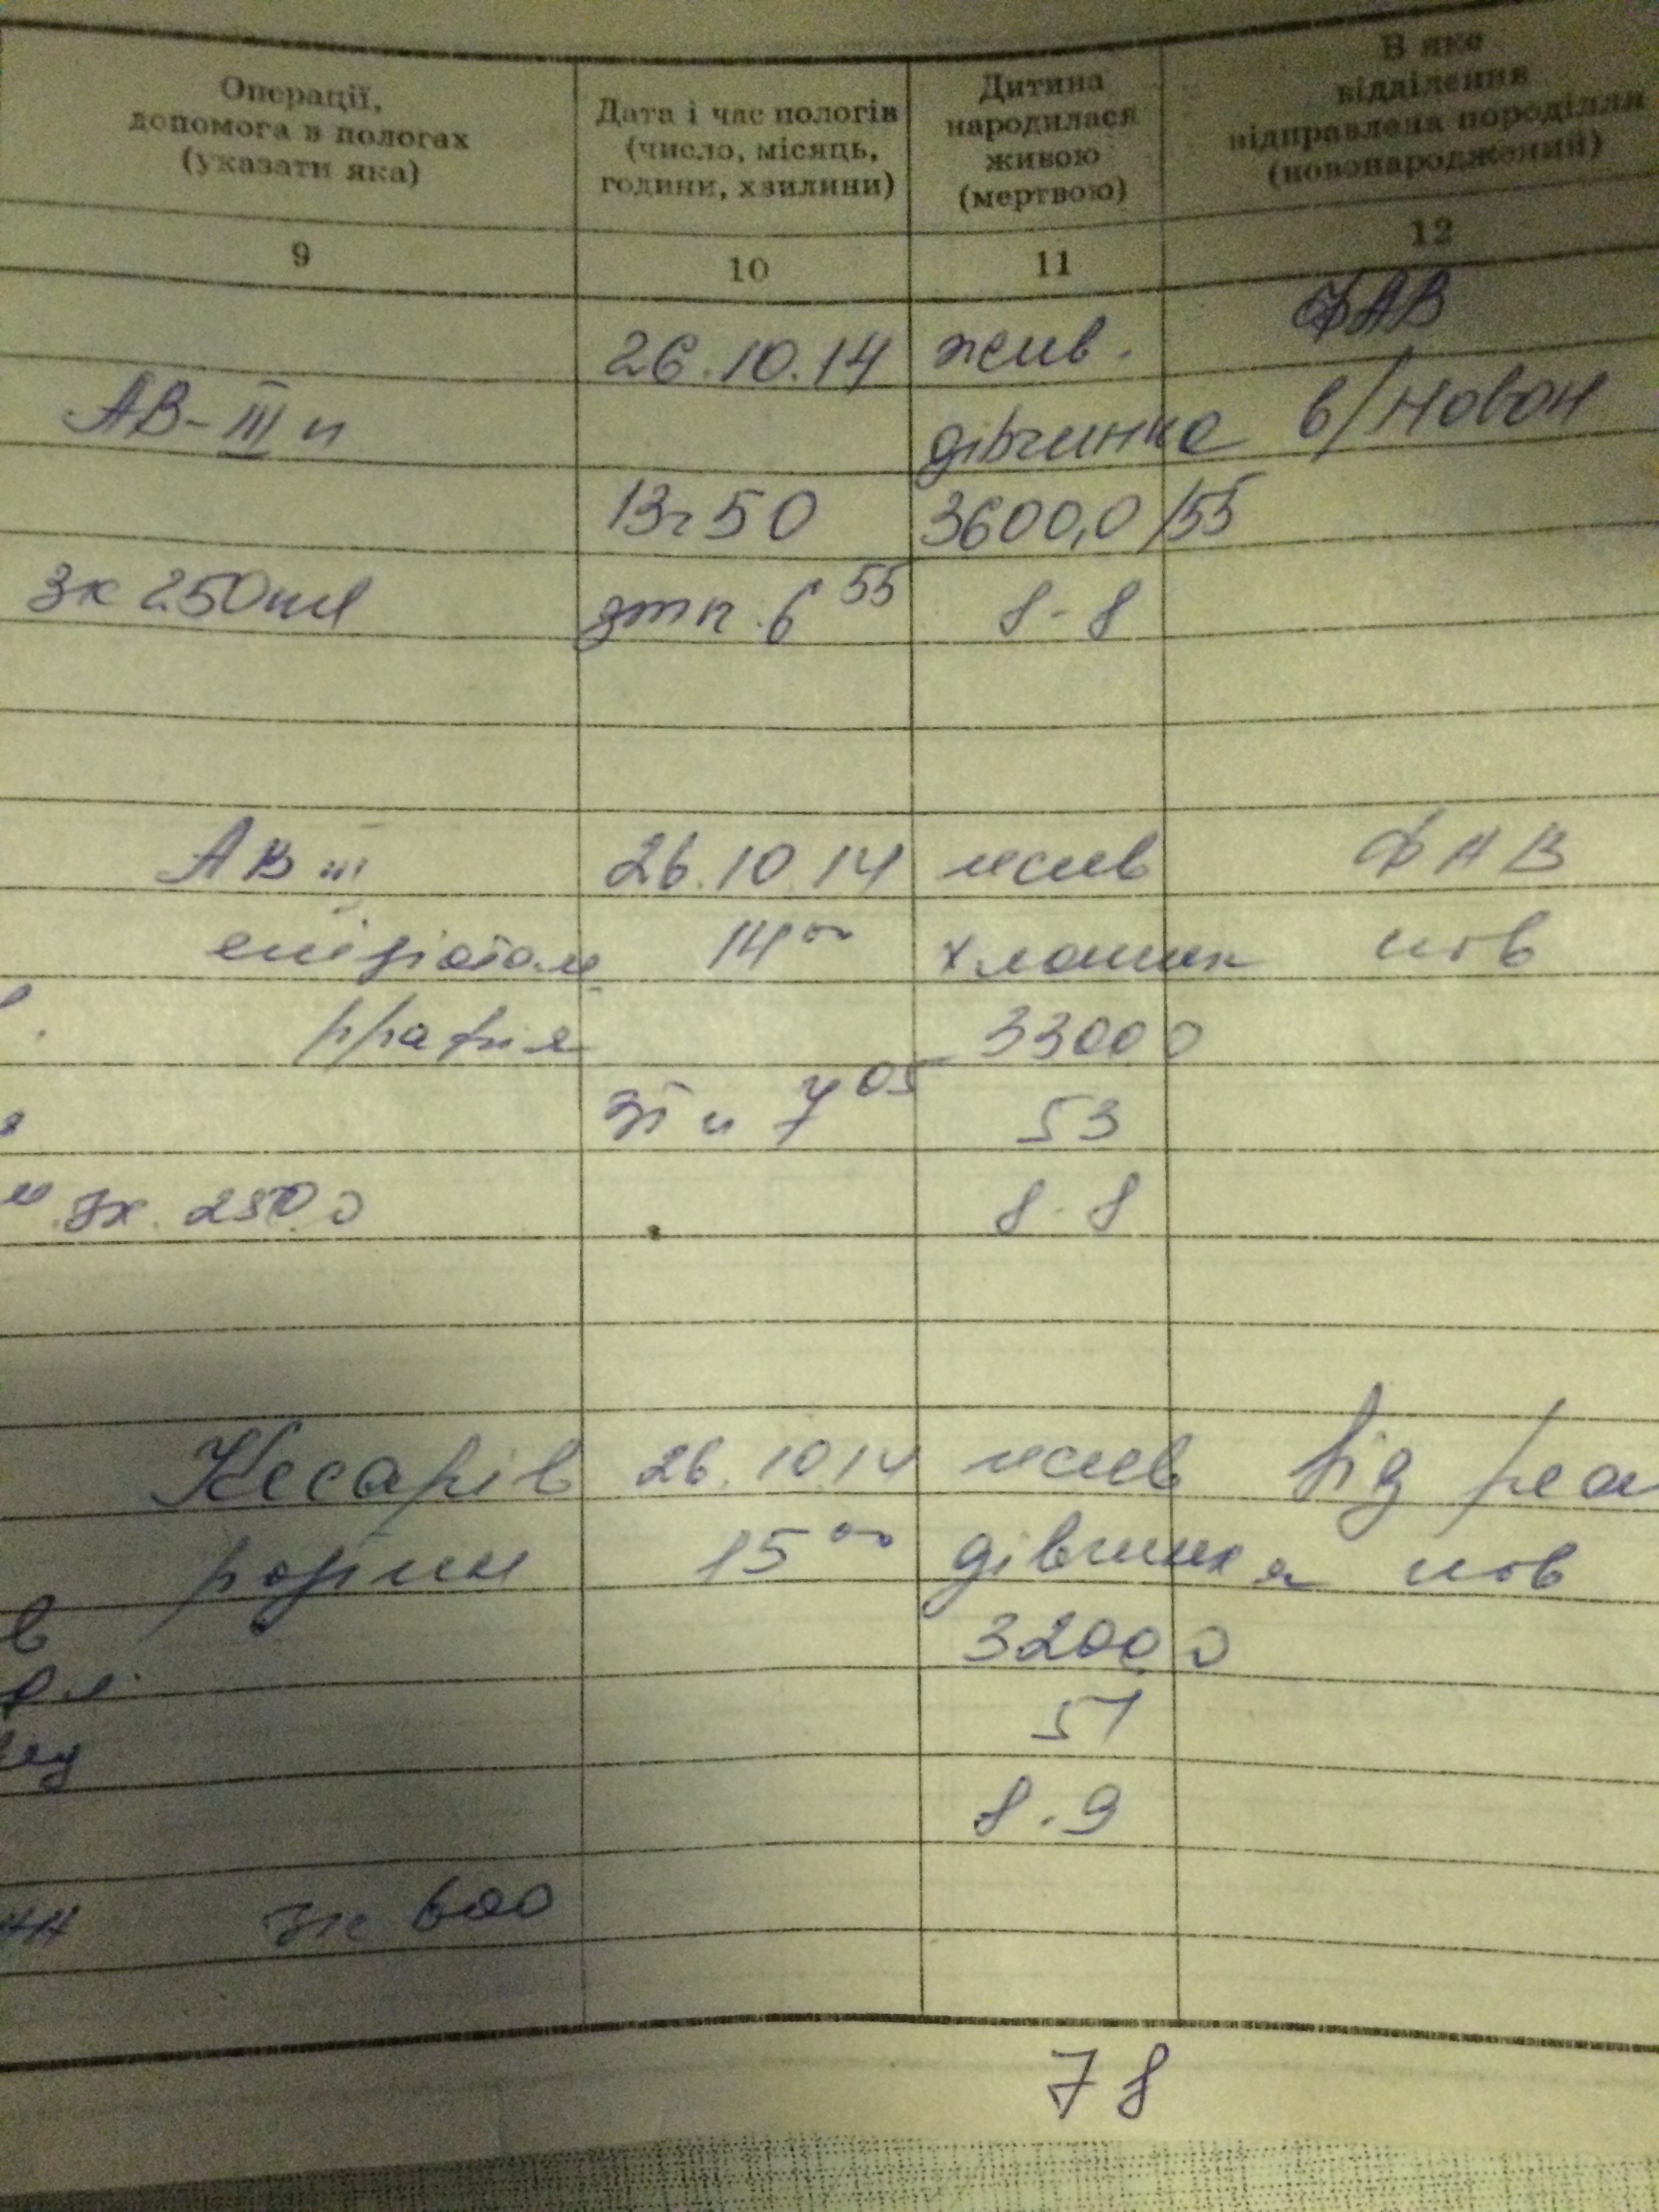 Операції,
допомога в пологах
(указати яка)
Дата і час пологів
(число, місяць,
години, хвилини)
Дитина
народилася
живою
(мертвою)
В яке
відділення
відправлена породілля
(новонароджений)
9 10 11 12
26.10.14 жив. ФАВ
АВ-III п дівчинка в/новон
13г50 3600,0/55
зк 250мл 6 55 8-8
АВ III 26.10.14 жив ФАВ
епізіотом 14 00 хлопчик нов
ррафия 33000
7 05 53
зк. 250,0 8-8
Кесарів 26.10.14 жив від реа
розтин 15 00 дівчинка нов
3200,0
51
8.9
зк 600
78